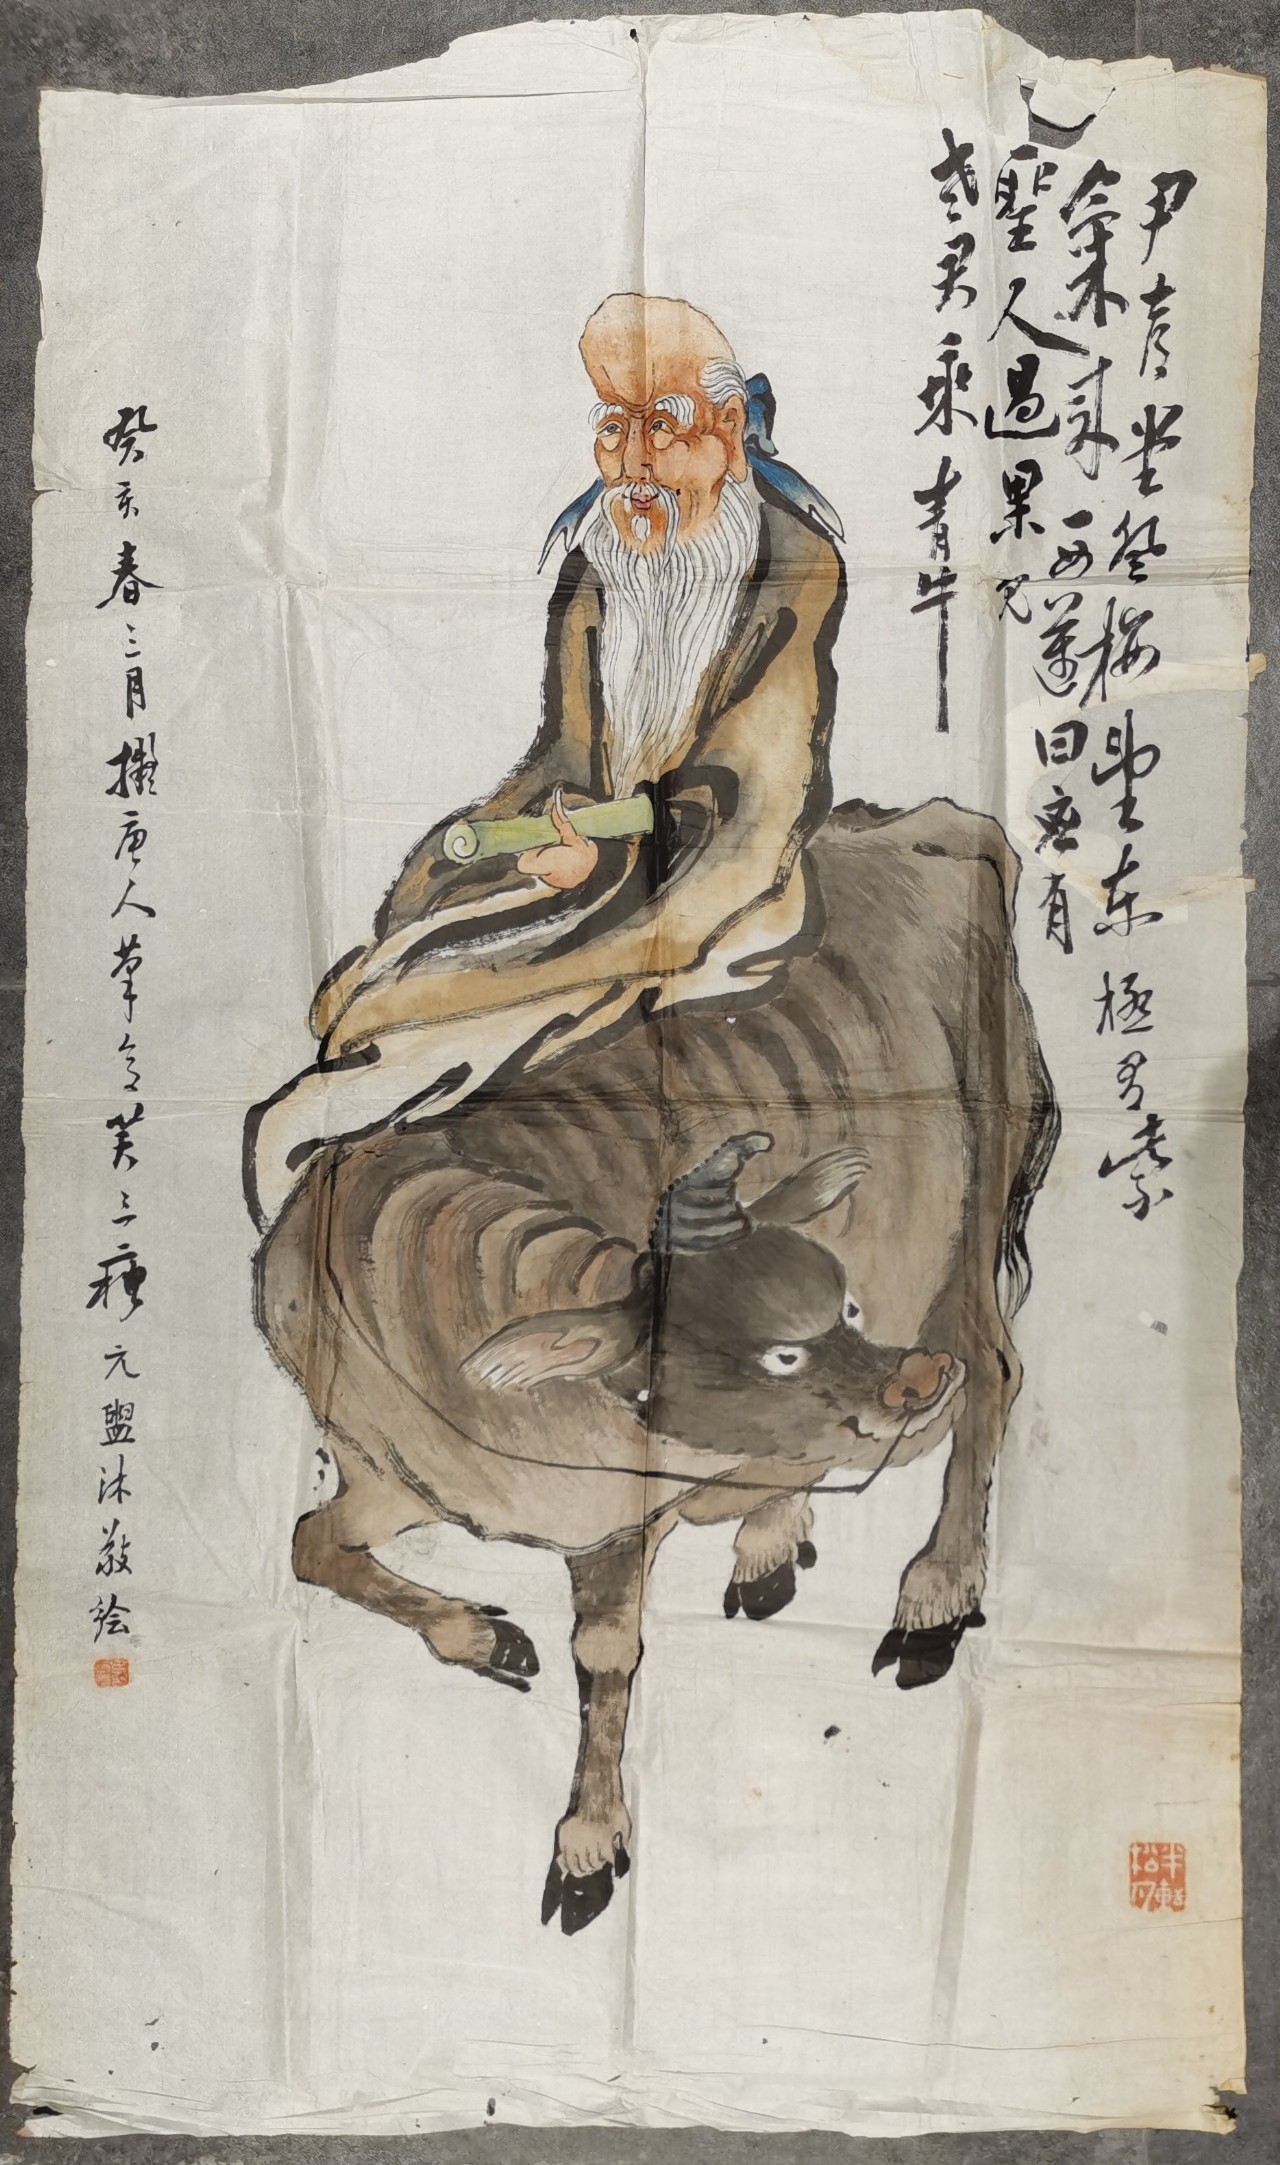 尹喜堂登楼望东極有紫
氣来西邁曰應有
聖人過果見
老君乘青牛
癸亥春三月撫唐人筆意 元盟沐敬绘